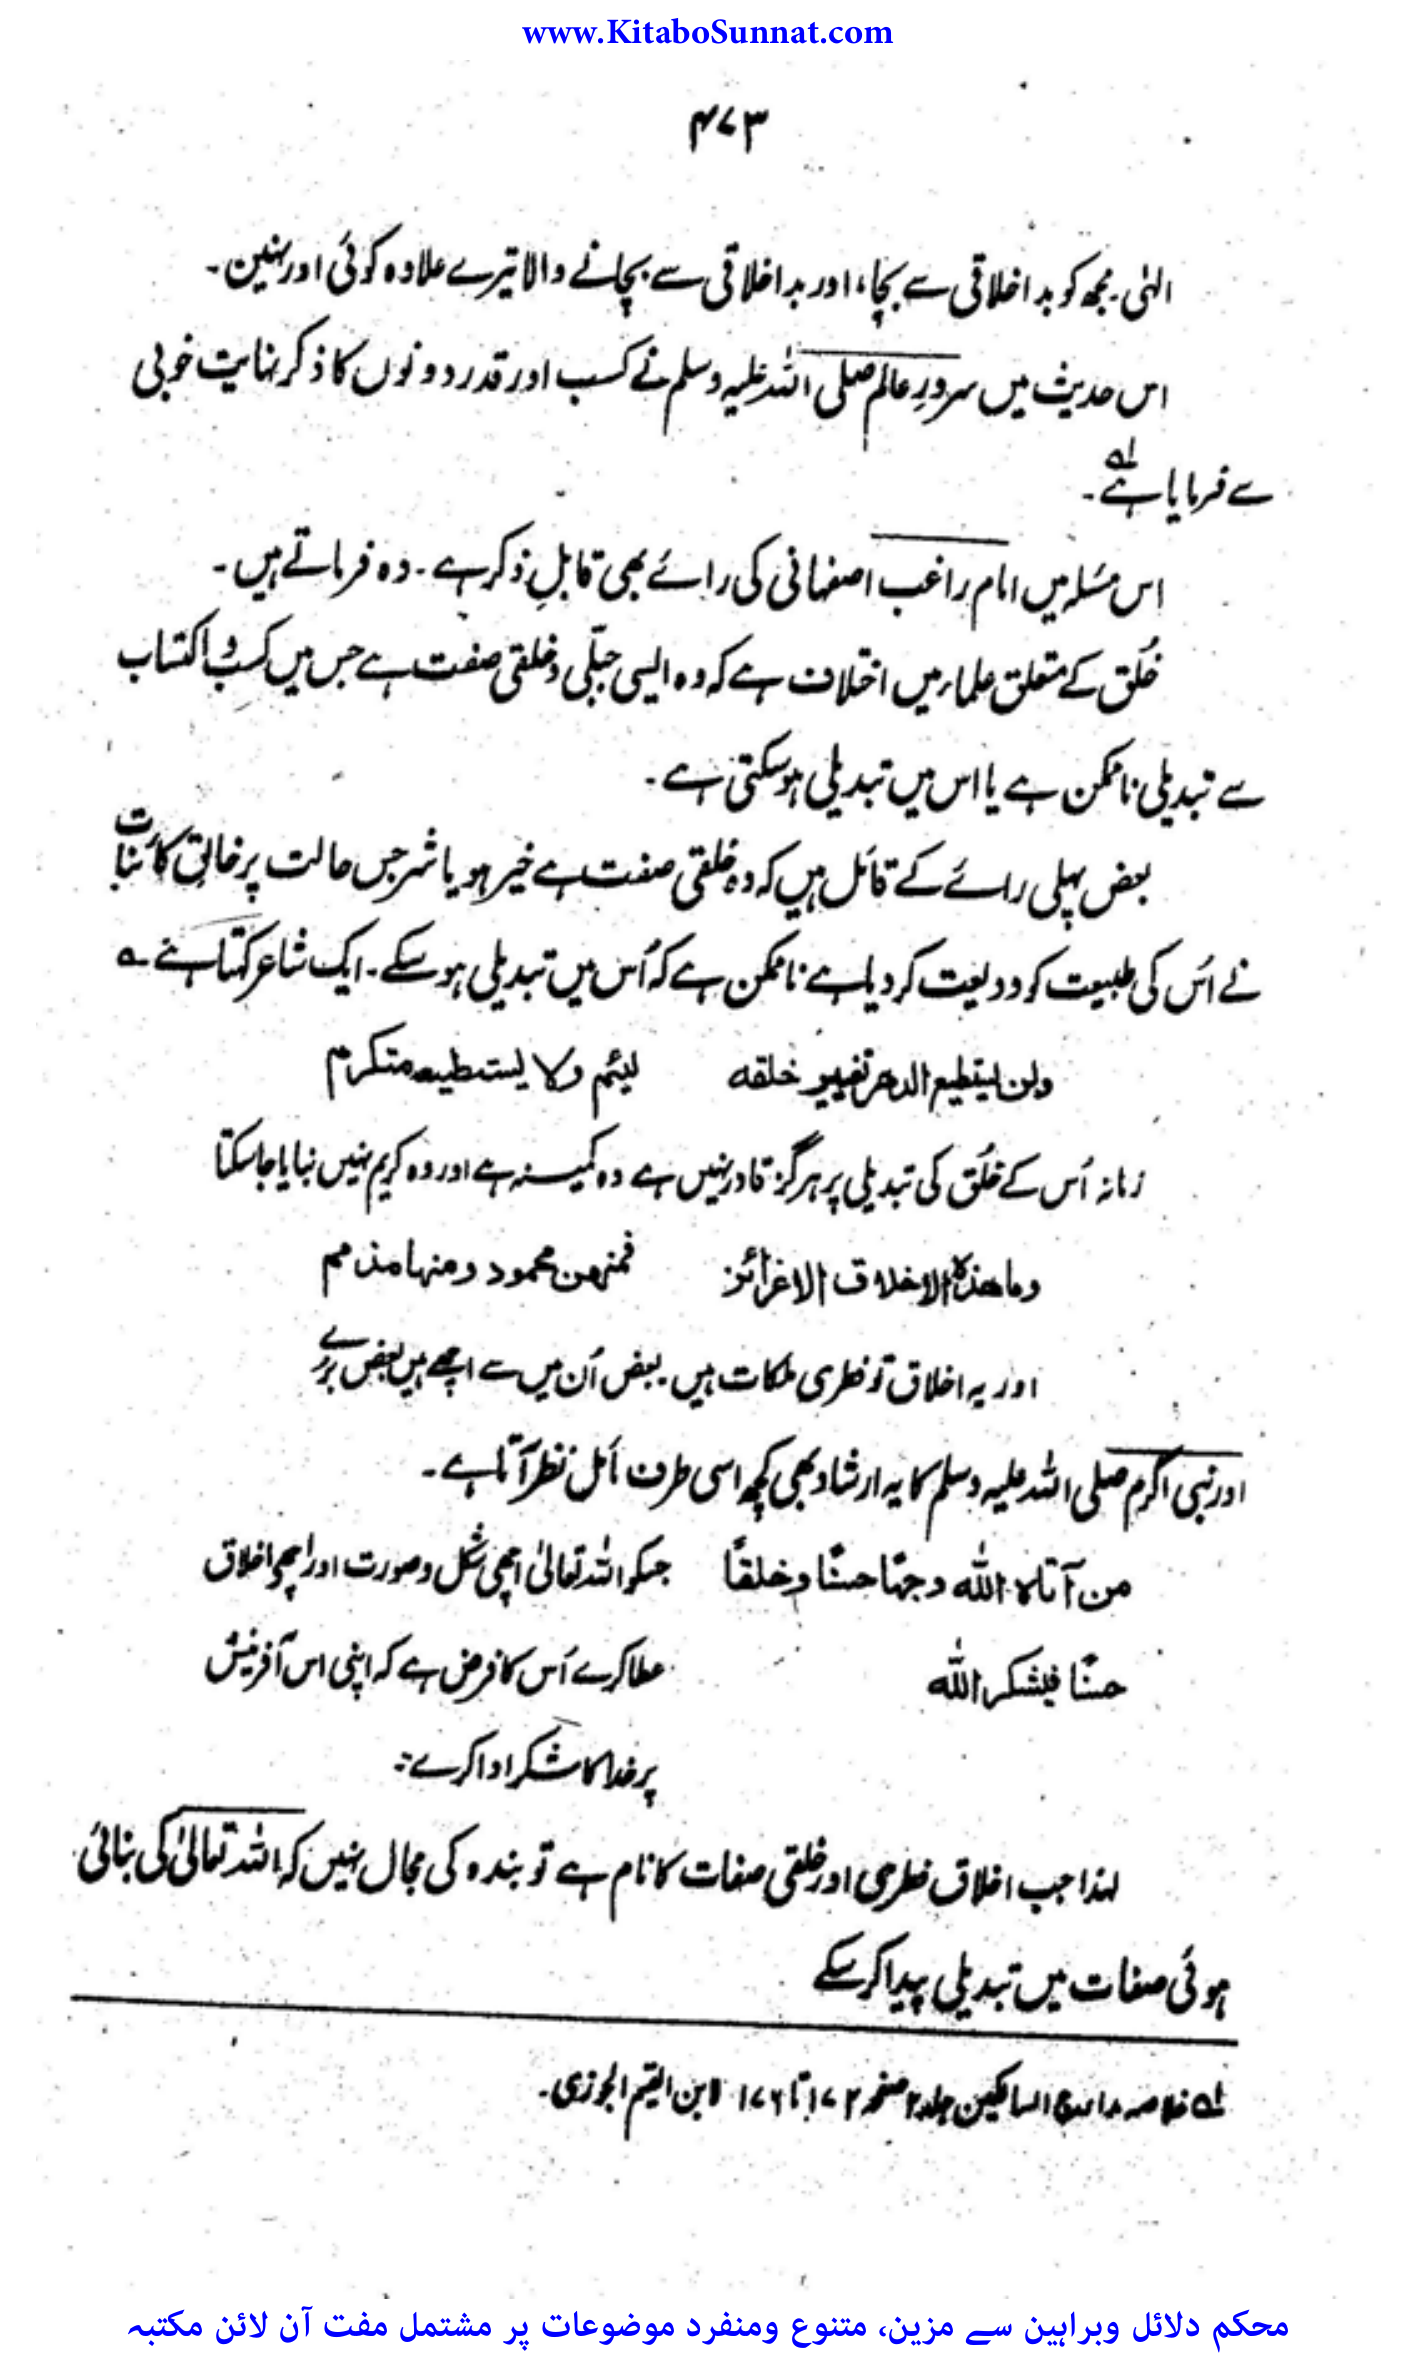 www.KitaboSunnat.com
۴۷۳
الہٰی۔ مجھ کو بد اخلاقی سے بچا، اور بد اخلاقی سے بچانے والا تیرے علاوہ کوئی اور نہیں۔
اس حدیث میں سرورِ عالم صلی اللہ علیہ وسلم نے کسب اور قدر دونوں کا ذکر نہایت خوبی
سے فرمایا ہے۔ لہ
اس مسئلہ میں امام راغب اصفہانی کی رائے بھی قابلِ ذکر ہے۔ وہ فرماتے ہیں۔
خُلق کے متعلق علماء میں اختلاف ہے کہ وہ ایسی جبلّی و خلقی صفت ہے جس میں کسب و اکتساب
سے تبدیلی ناممکن ہے یا اس میں تبدیلی ہو سکتی ہے۔
بعض پہلی رائے کے قائل ہیں کہ وہ خلقی صفت ہے خیر ہو یا شر جس حالت پر خالقِ کائنات
نے اُس کی طبیعت کو ودیعت کر دیا ہے ناممکن ہے کہ اُس میں تبدیلی ہو سکے۔ ایک شاعر کہتا ہے ؎
ولن یستطیع الدھر تغییر خلقہ لئیم ولا یستطیعہ متکرم
زمانہ اُس کے خُلق کی تبدیلی پر ہرگز قادر نہیں ہے وہ کمینہ ہے اور وہ کریم نہیں بنایا جا سکتا
وما ھذہ الاخلاق الا غرائز فمنھن محمود ومنھا مذمم
اور یہ اخلاق تو فطری ملکات ہیں۔ بعض اُن میں سے اچھے ہیں بعض بُرے
اور نبی اکرم صلی اللہ علیہ وسلم کا یہ ارشاد بھی کچھ اسی طرف مائل نظر آتا ہے۔
من آتاہ اللہ وجھًا حسنًا وخلقًا جسکو اللہ تعالیٰ اچھی شکل و صورت اور اچھے اخلاق
حسنًا فلیشکر اللہ عطا کرے اُس کا فرض ہے کہ اپنی اس آفرینش
پر خدا کا شکر ادا کرے:
لہذا جب اخلاق فطری اور خلقی صفات کا نام ہے تو بندہ کی مجال نہیں کہ اللہ تعالیٰ کی بنائی
ہوئی صفات میں تبدیلی پیدا کر سکے
لہ خلاصہ مدارج السالکین جلد ۲ صفحہ ۱۷۲ تا ۱۷۶ لابن القیم الجوزی۔
محکم دلائل وبراہین سے مزین، متنوع ومنفرد موضوعات پر مشتمل مفت آن لائن مکتبہ